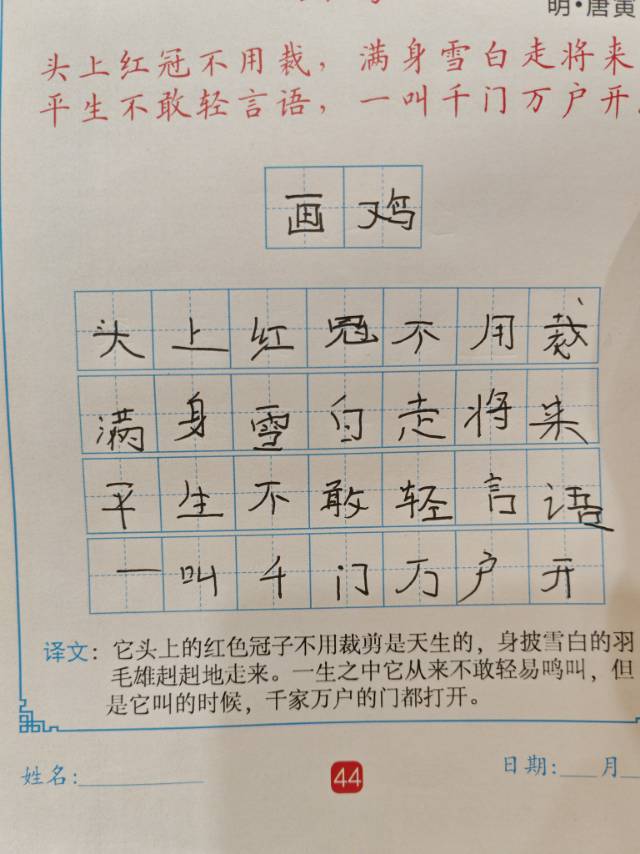 明·唐寅
头上红冠不用裁，满身雪白走将来
平生不敢轻言语，一叫千门万户开
画鸡
头上红冠不用裁
满身雪白走将来
平生不敢轻言语
一叫千门万户开
译文：它头上的红色冠子不用裁剪是天生的，身披雪白的羽
毛雄赳赳地走来。一生之中它从来不敢轻易鸣叫，但
是它叫的时候，千家万户的门都打开。
姓名： 44 日期： 月